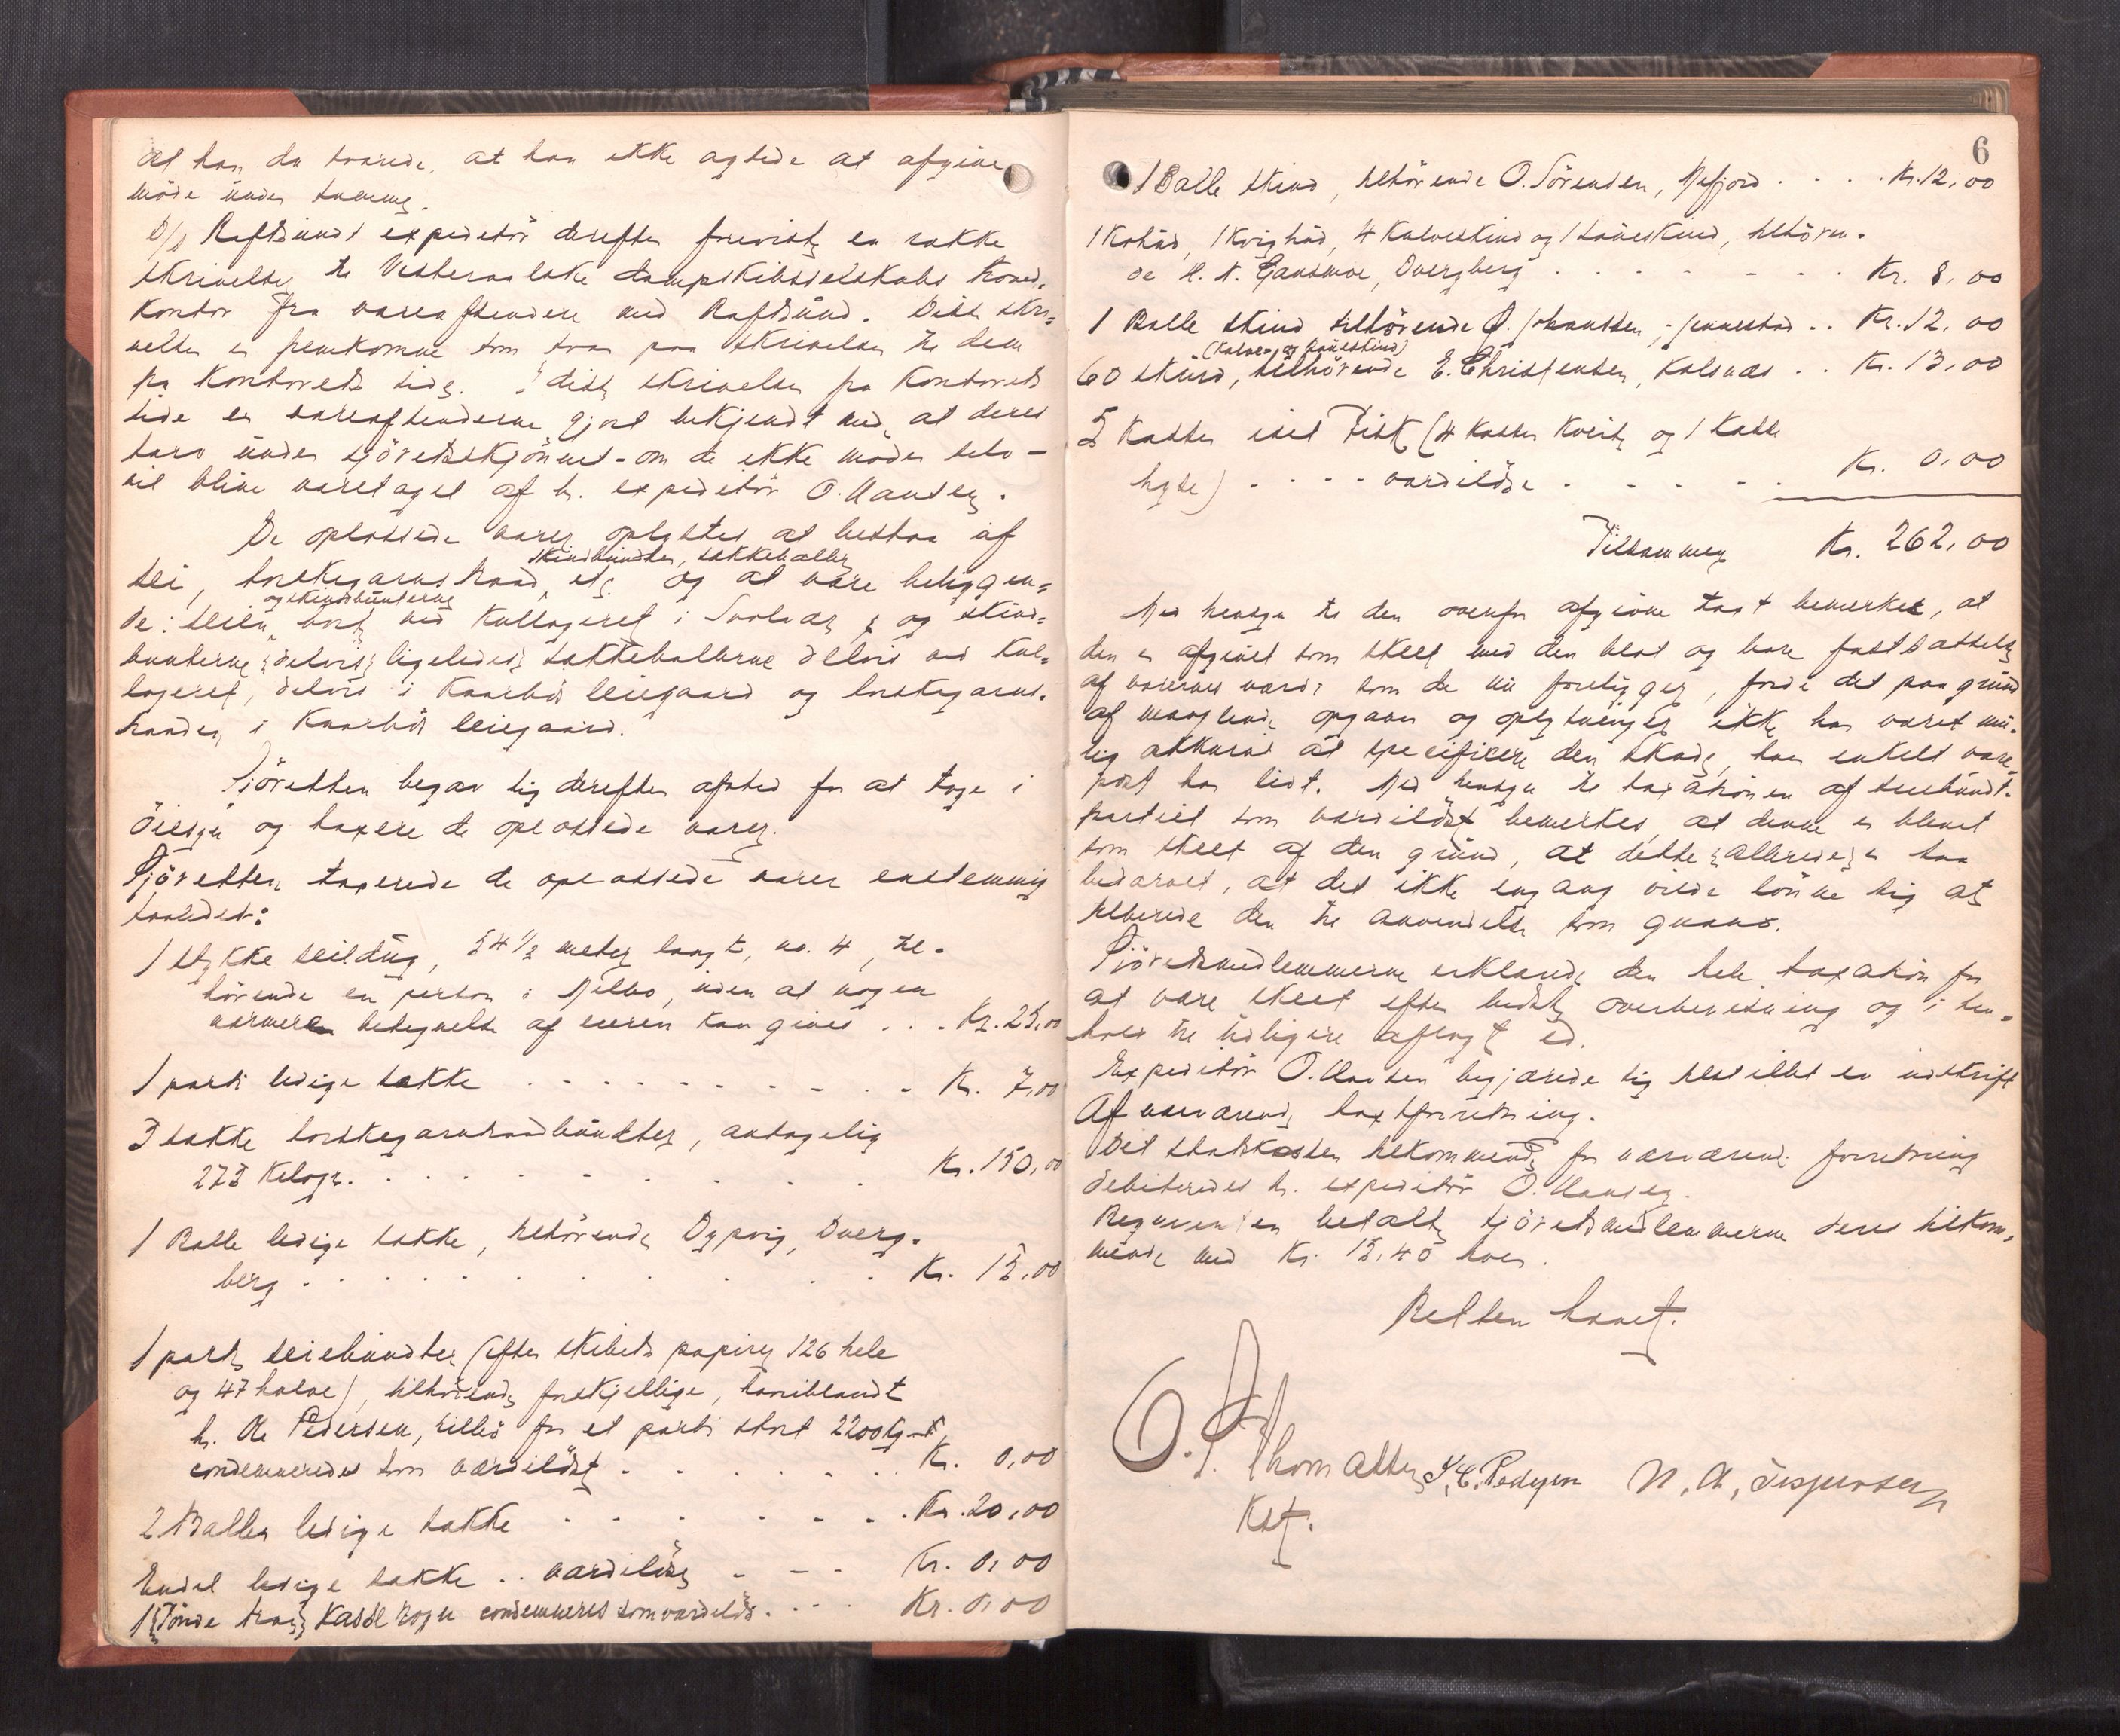 at han da svarede, at han ikke agtede at afgive
møde under samme.
D/S Raftsunds expeditør derefter foreviste en række
skrivelser til Vesteraalske dampskibsselskabs hoved-
kontor fra vareafsendere med Raftsund. Disse skri-
velser er fremkomne som svar paa skrivelser til dem
fra kontorets side. I disse skrivelser fra kontorets
side er vareafsenderne gjort bekjendt med, at deres
tarv under sjöretsskjönnet - om de ikke møder selv -
vil blive varetaget af hr. expeditør O. Hansen.
De oplossede varer oplystes at bestaa af
skindbundter, sækkeballer
sei, torskegarnstraad, etc. og at være beliggen-
og skindbunterne
de: seien bort ved kullageret i Svolvær, og skind-
bunterne {delvis} ligeledes, sækkeballerne delvis ved kul-
lageret, delvis i Kaarbös leiegaard og torskegarns-
traaden i Kaarbös leiegaard.
Sjöretten begav sig derefter afsted for at tage i
öiesyn og taxere de oplossede varer.
Sjöretten taxerede de oplossede varer enstemmig
saaledes:
1 stykke seildug, 54½ meter langt, no. 4, til-
hörende en person i Melbo, uden at nogen
nærmere betegnelse af eieren kan gives . . . Kr. 25,00
1 parti ledige sække . . . . . . . . . . Kr. 7,00
3 sække torskegarnstraadbundter, antagelig
272 kilogr. . . . . . . . . Kr. 150,00
1 Balle ledige sække, tilhörende Dypvig, Dverg-
berg . . . . . . . . . . Kr. 15,00
1 parti seiebundter (efter skibets papirer 126 hele
og 47 halve), tilhörende forskjellige, hvoriblandt
hr. Ole Pedersen, for et parti stort 2200 kg,
condemneredes som værdilöst . . . . . . . Kr. 0,00
2 Baller ledige sække . . . . . . . Kr. 20,00
Endel ledige sække . . værdilös . . . Kr. 0,00
1 {Tönde tran} Kasse rogn condemneres som værdilös. . . . Kr. 0,00
6
1 Balle skind, tilhörende O. Sörensen, Mefjord . . . . Kr. 12,00
1 Kohud, 1 kvighud, 4 kalveskind og 1 saueskind, tilhören-
de H. N. Gansmoe, Dvergberg . . . . . . . . Kr. 8,00
1 Balle skind tilhörende J. Johanssen, Jennestad . . Kr. 12,00
(kalve- og saueskind)
60 skind, tilhörende E. Christensen, Kalsnes . . Kr. 13,00
5 Kasser iset Fisk (4 kasser kveite og 1 kasse
hyse) . . . . værdilöse . . . . . Kr. 0,00
Tilsammen Kr. 262,00
Med hensyn til den ovenfor afgivne taxt bemerkes, at
den er afgivet som skeet med den blot og bare fastsættelse
af varernes værdi som de nu foreligger, fordi det paa grund
af manglende opgaver og oplysninger ikke har været mu-
lig akkurat at specificere den skade, hver enkelt vare-
post har lidt. Med hensyn til taxationen af seiebundt-
partiet som værdilöst bemerkes, at denne er blevet
som skeet af den grund, at dette {allerede} er saa
bedærvet, at det ikke engang vilde lönne sig at
tilberede den til anvendelse som guano.
Sjöretsmedlemmerne erklærede den hele taxation for
at være skeet efter bedste overbevisning og i hen-
hold til tidligere aflagt ed.
Expeditör O. Hansen begjærede sig tilstillet en udskrift
af nærværende taxtforretning.
Det statskassen tilkommende for nærværende forretning
debiteredes hr. expeditör O. Hansen.
Requirenten betalte sjöretsmedlemmerne deres tilkom-
mende med Kr. 15,40 hver.
Retten hævet.
O. Thomassen S. E. Pedersen N. A. Jespersen
Kst.